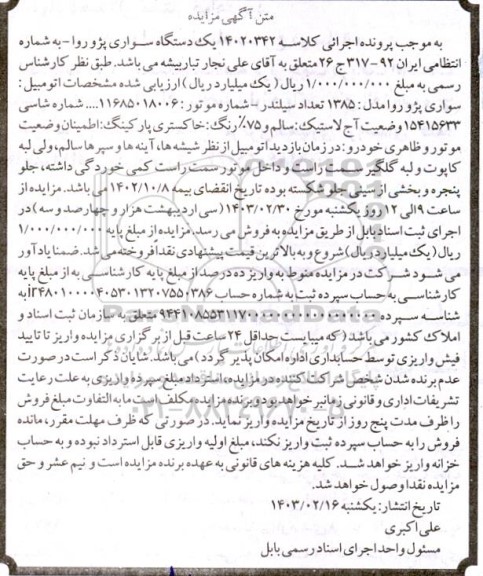 متن آگهی مزایده
به موجب پرونده اجرائی کلاسه ۱۴۰۲۰۳۴۲ یک دستگاه سواری پژو روا - به شماره
انتظامی ایران ۹۲-۳۱۷ج۲۶ متعلق به آقای علی نجار تباربیشه می باشد. طبق نظر کارشناس
رسمی به مبلغ ۱/۰۰۰/۰۰۰/۰۰۰ ریال (یک میلیارد ریال) ارزیابی شده مشخصات اتومبیل:
سواری پژو روا مدل: ۱۳۸۵ تعداد سیلندر - شماره موتور: ۱۱۶۸۵۰۱۸۰۰۶.... شماره شاسی
۱۵۴۱۵۶۳۳ وضعیت آج لاستیک: سالم و ۷۵٪ رنگ: خاکستری پارکینگ: اطمینان وضعیت
موتور و ظاهری خودرو: در زمان بازدید اتومبیل از نظر شیشه ها، آینه ها و سپرها سالم، ولی لبه
کاپوت و لبه گلگیر سمت راست و داخل موتور سمت راست کمی خوردگی داشته، جلو
پنجره و بخشی از سینی جلو شکسته بوده تاریخ انقضای بیمه ۱۴۰۲/۱۰/۸ می باشد. مزایده از
ساعت ۹ الی ۱۲ روز یکشنبه مورخ ۱۴۰۳/۰۲/۳۰ (سی اردیبهشت هزار و چهارصد و سه) در
اجرای ثبت اسناد بابل از طریق مزایده به فروش می رسد. مزایده از مبلغ پایه ۱/۰۰۰/۰۰۰/۰۰۰
ریال (یک میلیارد ریال) شروع و به بالاترین قیمت پیشنهادی نقداً فروخته می شد. ضمنا یادآور
می شود شرکت در مزایده منوط به واریز ده درصد از مبلغ پایه کارشناسی به از مبلغ پایه
کارشناسی به حساب سپرده ثبت به شماره حساب
شناسه سپرده متعلق به سازمان ثبت اسناد و
املاک کشور می باشد (که میبایست حداقل ۲۴ ساعت قبل از برگزاری مزایده واریز تا تایید
فیش واریزی توسط حسابداری اداره امکان پذیر گردد) می باشد. شایان ذکر است در صورت
عدم برنده شدن شخص شرکت کننده در مزایده، استرداد مبلغ سپرده واریزی به علت رعایت
تشریفات اداری و قانونی زمانبر خواهد بود و برنده مزایده مکلف است ما به التفاوت مبلغ فروش
را ظرف مدت پنج روز از تاریخ مزایده واریز نماید. در صورتی که ظرف مهلت مقرر، مانده
فروش را به حساب سپرده ثبت واریز نکند، مبلغ اولیه واریزی قابل استرداد نبوده و به حساب
خزانه واریز خواهد شد. کلیه هزینه های قانونی به عهده برنده مزایده است و نیم عشر و حق
مزایده نقدا وصول خواهد شد.
تاریخ انتشار: یکشنبه ۱۴۰۳/۰۲/۱۶
علی اکبری
مسئول واحد اجرای اسناد رسمی بابل